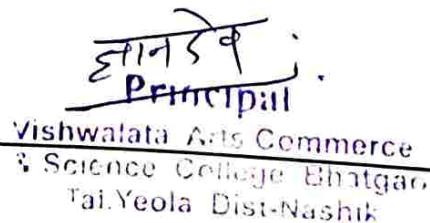 ज्ञानदेव
Principal
Vishwalata Arts Commerce
& Science College Bhatgao
Tal.Yeola Dist-Nashik